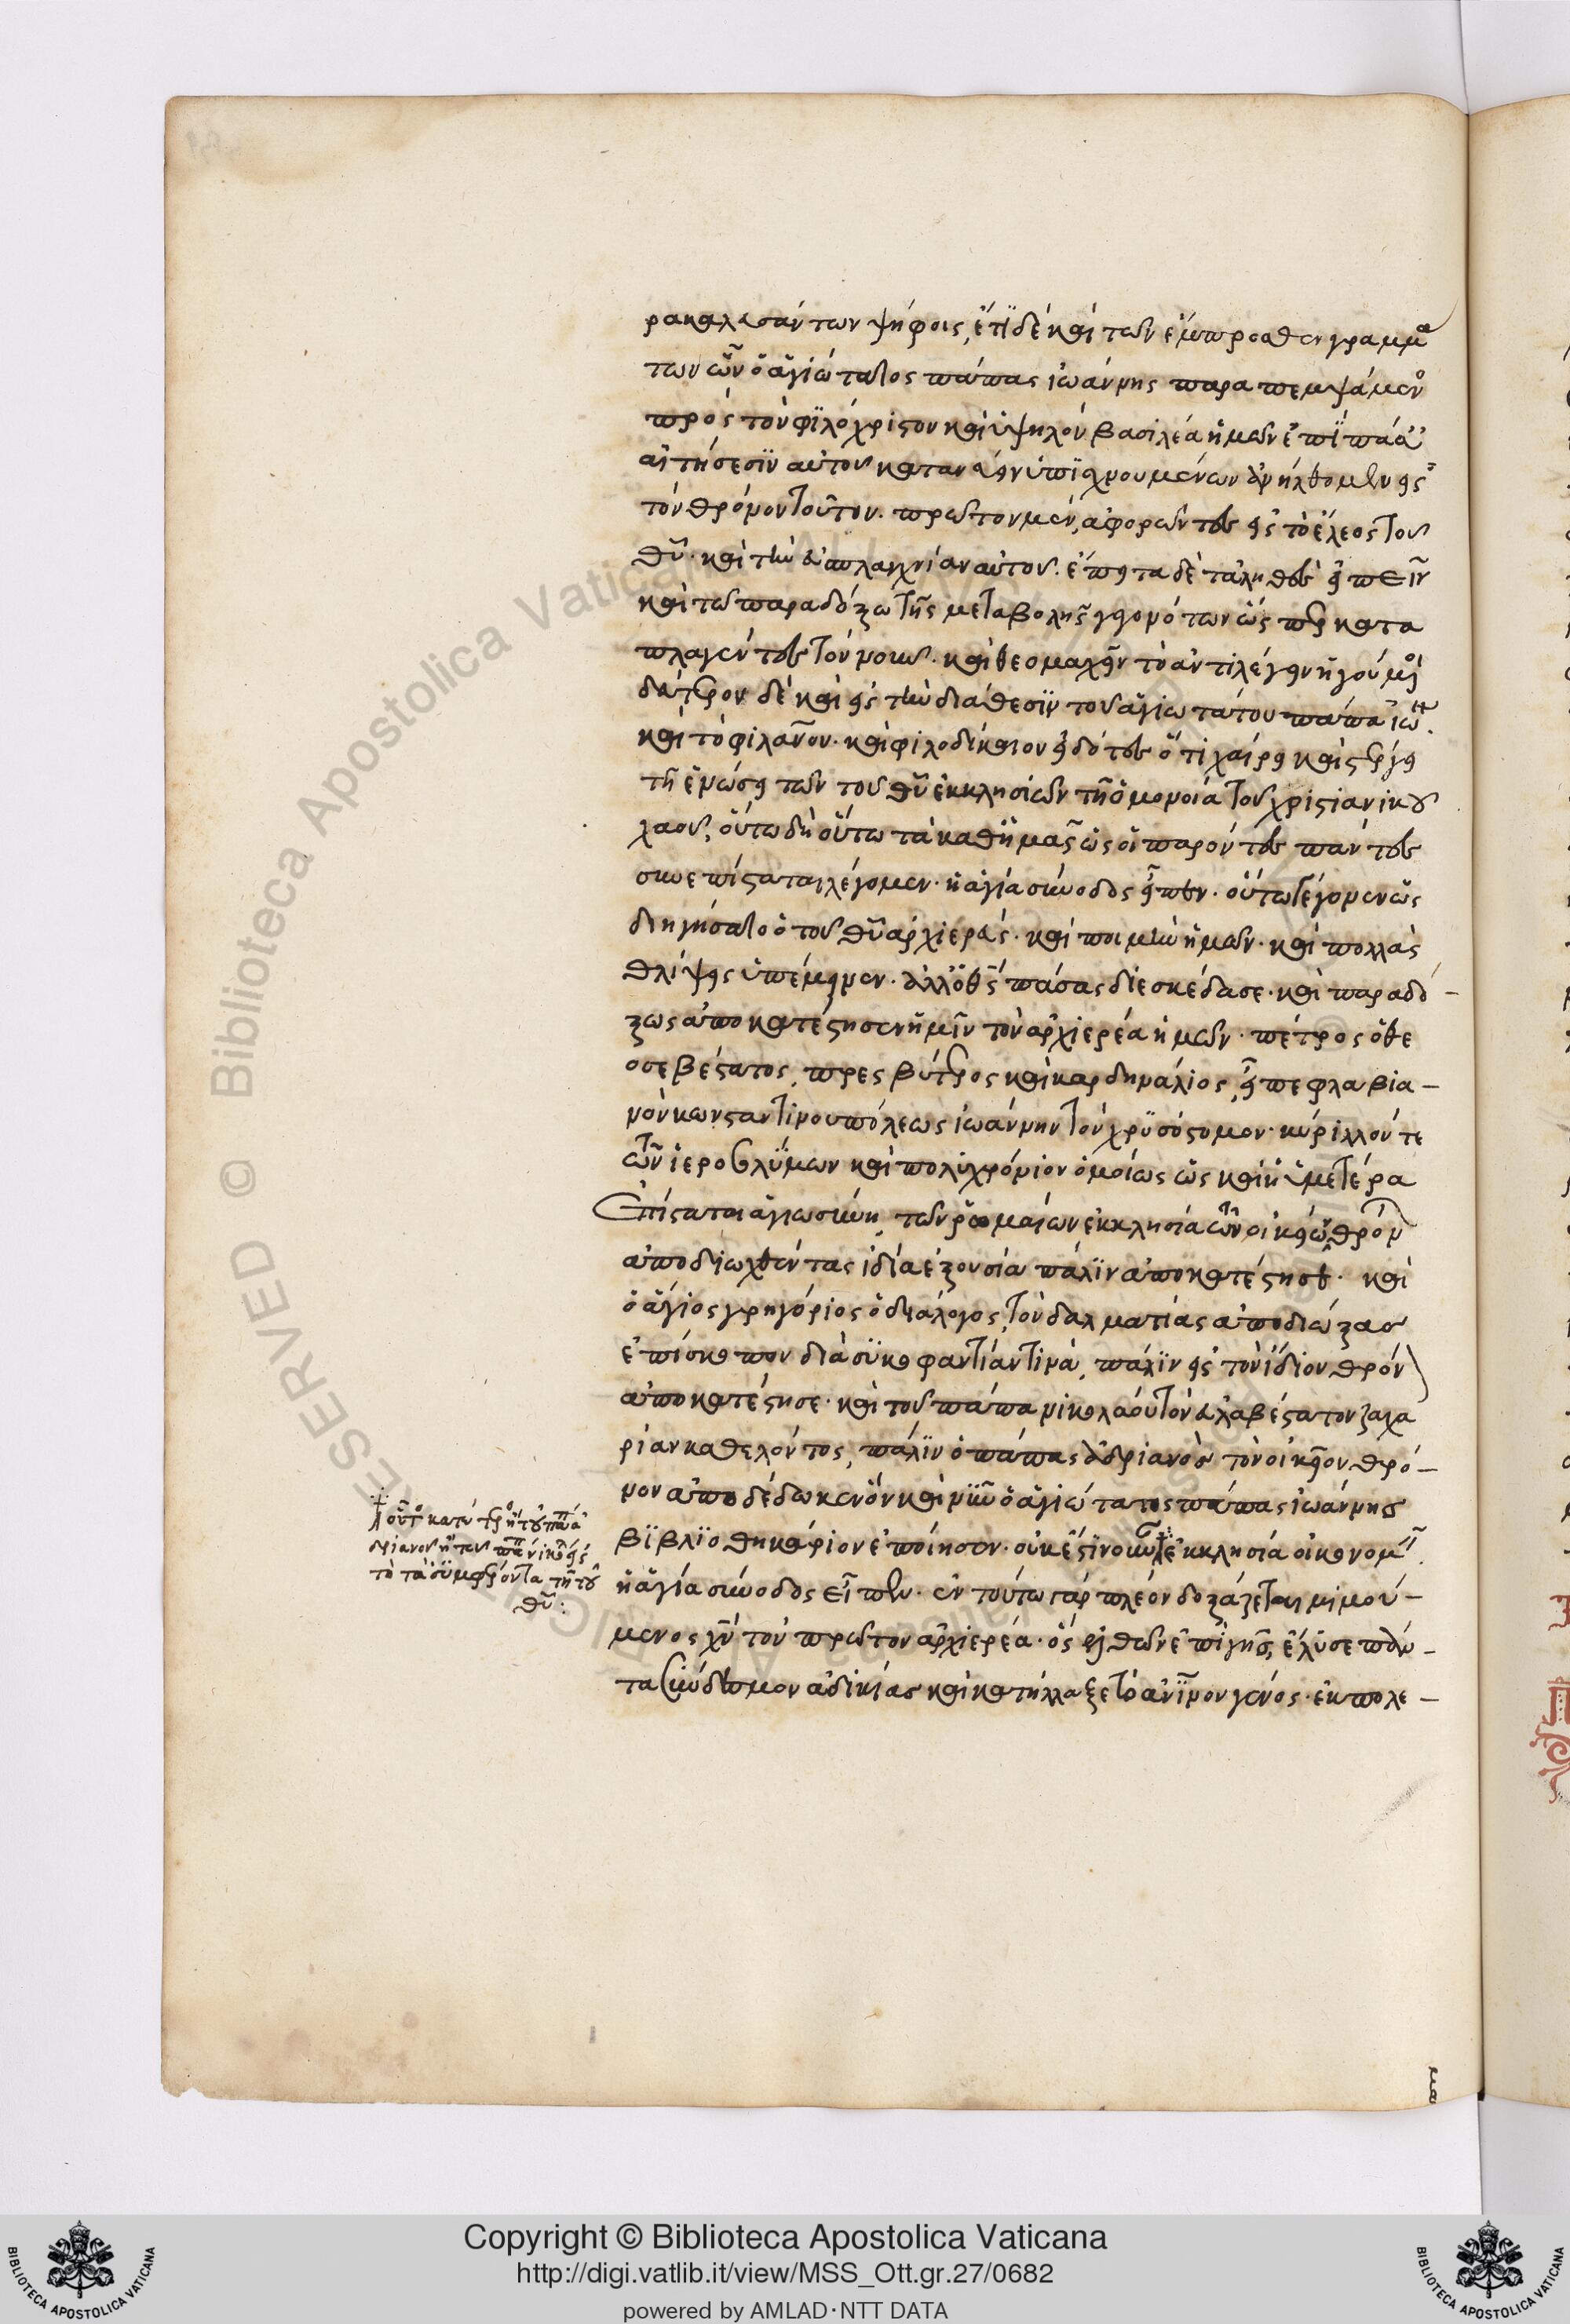 ρακαλεσάντων ψήφοις, ἔτι δὲ καὶ τῶν ἔμπροσθεν γραμμά
των ὧν ὁ ἁγιώτατος πάπας ἰωάννης παραπεμψάμενος
πρὸς τὸν φιλόχριστον καὶ ὑψηλὸν βασιλέα ἡμῶν ἐπὶ πάσ
αἰτήσεσιν αὐτοῦ κατανεύειν ὑπισχνουμένων ἀνήλθομεν εἰς
τὸν θρόνον τοῦτον. πρῶτον μὲν, ἀφορῶντες εἰς τὸ ἔλεος τοῦ
θῦ. καὶ τὴν εὐσπλαγχνίαν αὐτοῦ. ἔπειτα δὲ τἀληθὲς εἰπεῖν
καὶ τῶ παραδόξω τῆς μεταβολῆς γεγονότων ὥσπερ κατα
πλαγέντες τὸν νοῦν. καὶ θεομαχεῖν τὸ ἀντιλέγειν ἡγούμενοι
δεύτερον δὲ καὶ εἰς τὴν διάθεσιν τοῦ ἁγιωτάτου πάπα ἰω.
καὶ τὸ φιλάνον. καὶ φιλοδίκαιον εἰδότες ὅτι χαίρει καὶ στέργει
τῆ ἑνώσει τῶν τοῦ θῦ ἐκκλησιῶν τῆ ὁμονοία τοῦ χριστιανικοῦ
λαοῦ, οὕτω δὴ οὕτω τὰ καθ ἡμᾶς ὡς οἱ παρόντες πάντες
συνεπίστανται λέγομεν. ἡ ἁγία σύνοδος εἶπεν. οὕτω γέγονεν ὡς
διηγήσατο ὁ τοῦ θῦ ἀρχιερεύς. καὶ ποιμὴν ἡμῶν. καὶ πολλὰς
θλίψεις ὑπέμεινεν. ἀλλ ὁ θς πάσας διεσκέδασε. καὶ παραδό-
ξως ἀποκατέστησεν ἡμῖν τὸν ἀρχιερέα ἡμῶν. πέτρος ὁ θε
οσεβέστατος, πρεσβύτερος καὶ καρδηνάλιος, εἶπε φλαβια-
νὸν κωνσταντινουπόλεως ἰωάννην τὸν χρυσόστομον. κύριλλόν τε
τῶν ἱεροσολύμων καὶ πολυχρόνιον ὁμοίως ὡς καὶ ἡ ὑμετέρα
ἐπίσταται ἁγιωσύνη, τῶν ῥωμαίων ἐκκλησία τῶν οἰκείων θρόνων
ἀποδιωχθέντας ἰδία ἐξουσία πάλιν ἀποκατέστησε. καὶ
ὁ ἅγιος γρηγόριος ὁ διάλογος, τὸν δαλματίας ἀποδιώξας
ἐπίσκοπον διὰ συκοφαντίαν τινὰ, πάλιν εἰς τὸν ἴδιον θρόνον
ἀποκατέστησε. καὶ τοῦ πάπα νικολάου τὸν εὐλαβέστατον ζαχα
ρίαν καθελόντος, πάλιν ὁ πάπας ἀδριανὸς τὸν οἰκεῖον θρό-
νον ἀποδέδωκεν ὃν καὶ νῦν ὁ ἁγιώτατος πάπας ἰωάννης
βιβλιοθηκάριον ἐποίησεν. οὐκ ἔστιν οὖν ἐκκλησία οἰκονομ
ἡ ἁγία σύνοδος εἶπεν. ἐν τούτω γὰρ πλέον δοξάζεται μιμού-
μενος χν τὸν πρῶτον ἀρχιερέα. ὃς ἐλθὼν ἐπὶ γῆς, ἔλυσε πάν-
τα σύνδεσμον ἀδικίας καὶ κατήλλαξε τὸ ἀνινον γένος. ἐκ πολε-
κατὰ τοῦ πάπα ἀ
δριανοῦ ἢ τοῦ πάπα νικο εἰς
τὸ τὰ συμφέροντα τῆ τοῦ
θῦ:
Copyright © Biblioteca Apostolica Vaticana
http://digi.vatlib.it/view/MSS_Ott.gr.27/0682
powered by AMLAD·NTT DATA